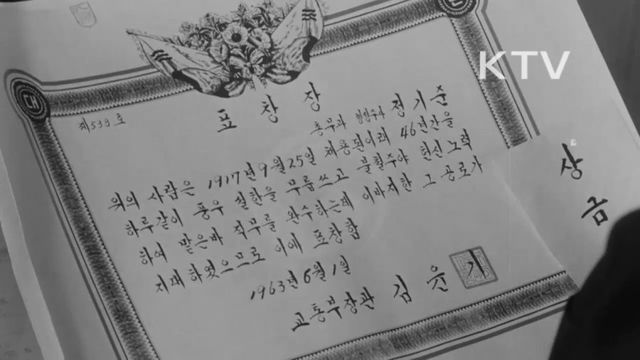 KTV
제539호
표창장
총무과 정기준
위의 사람은 1917년 9월 25일 채용된이래 46년간을
하루같이 풍우 설한을 무릅쓰고 불철주야 헌신노력
하여 맡은바 직무를 완수하는데 이바지한 그 공로가
지대하였으므로 이에 표창함
1963년 6월 1일
교통부장관 김윤기
상금